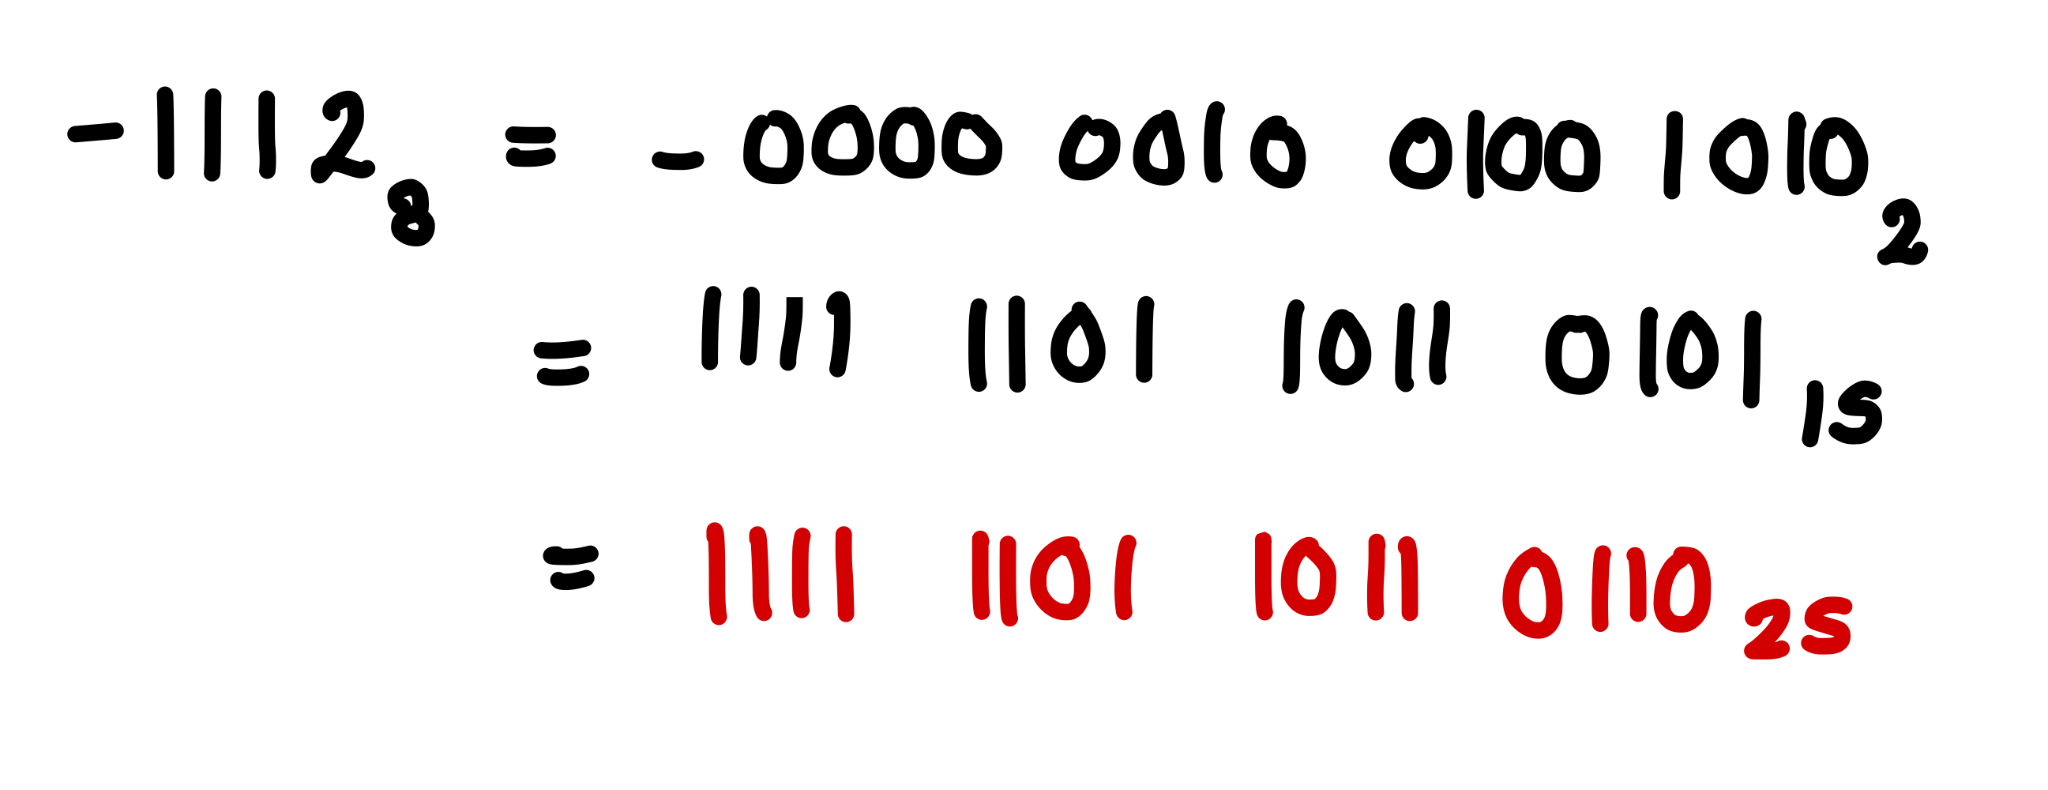 -1112₈ = -0000 0010 0100 1010₂
= 1111 1101 1011 0101₁ₛ
= 1111 1101 1011 0110₂ₛ